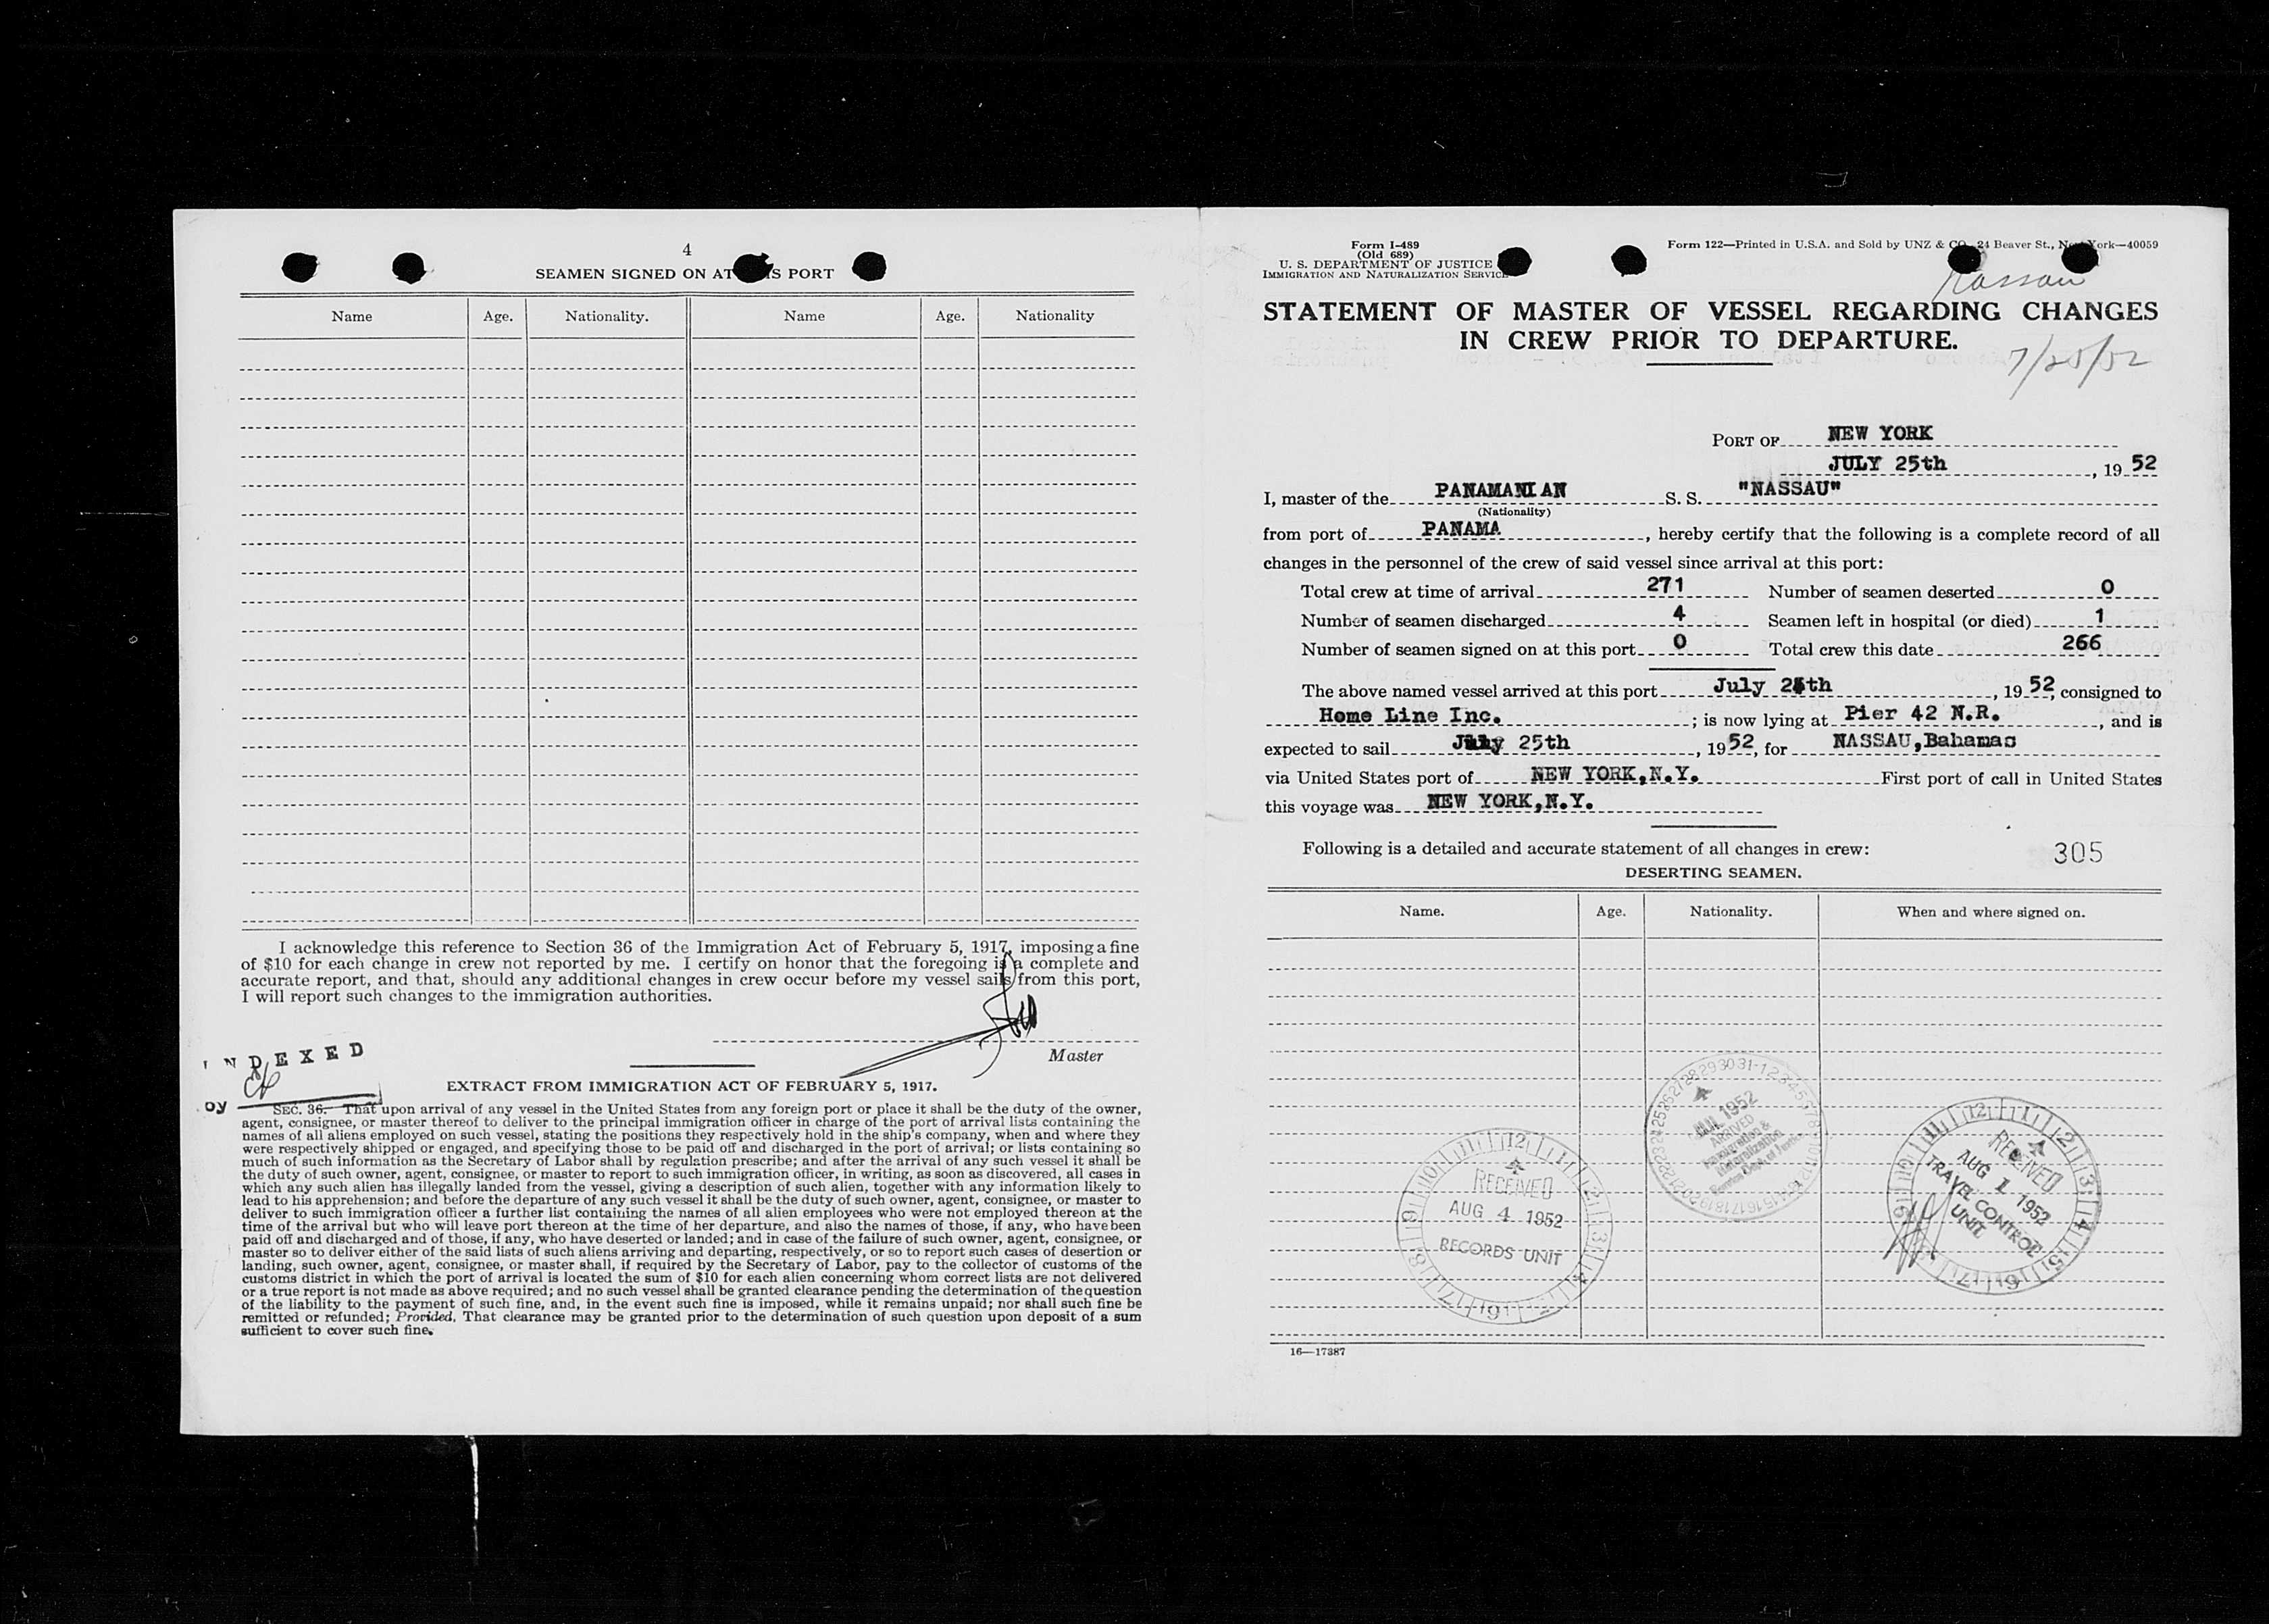 4
SEAMEN SIGNED ON AT IS PORT
Name Age. Nationality. Name Age. Nationality
I acknowledge this reference to Section 36 of the Immigration Act of February 5, 1917, imposing a fine
of $10 for each change in crew not reported by me. I certify on honor that the foregoing is a complete and
accurate report, and that, should any additional changes in crew occur before my vessel sails from this port,
I will report such changes to the immigration authorities.
Master
INDEXED
by
EXTRACT FROM IMMIGRATION ACT OF FEBRUARY 5, 1917.
SEC. 36. That upon arrival of any vessel in the United States from any foreign port or place it shall be the duty of the owner,
agent, consignee, or master thereof to deliver to the principal immigration officer in charge of the port of arrival lists containing the
names of all aliens employed on such vessel, stating the positions they respectively hold in the ship's company, when and where they
were respectively shipped or engaged, and specifying those to be paid off and discharged in the port of arrival; or lists containing so
much of such information as the Secretary of Labor shall by regulation prescribe; and after the arrival of any such vessel it shall be
the duty of such owner, agent, consignee, or master to report to such immigration officer, in writing, as soon as discovered, all cases in
which any such alien has illegally landed from the vessel, giving a description of such alien, together with any information likely to
lead to his apprehension; and before the departure of any such vessel it shall be the duty of such owner, agent, consignee, or master to
deliver to such immigration officer a further list containing the names of all alien employees who were not employed thereon at the
time of the arrival but who will leave port thereon at the time of her departure, and also the names of those, if any, who have been
paid off and discharged and of those, if any, who have deserted or landed; and in case of the failure of such owner, agent, consignee, or
master so to deliver either of the said lists of such aliens arriving and departing, respectively, or so to report such cases of desertion or
landing, such owner, agent, consignee, or master shall, if required by the Secretary of Labor, pay to the collector of customs of the
customs district in which the port of arrival is located the sum of $10 for each alien concerning whom correct lists are not delivered
or a true report is not made as above required; and no such vessel shall be granted clearance pending the determination of the question
of the liability to the payment of such fine, and, in the event such fine is imposed, while it remains unpaid; nor shall such fine be
remitted or refunded; Provided, That clearance may be granted prior to the determination of such question upon deposit of a sum
sufficient to cover such fine.
Form I-489
(Old 689)
U. S. DEPARTMENT OF JUSTICE
IMMIGRATION AND NATURALIZATION SERVICE
Form 122—Printed in U.S.A. and Sold by UNZ & CO. 24 Beaver St., New York—40059
Nassau
STATEMENT OF MASTER OF VESSEL REGARDING CHANGES
IN CREW PRIOR TO DEPARTURE.
7/25/52
PORT OF NEW YORK
JULY 25th, 19 52
I, master of the PANAMANIAN S. S. "NASSAU"
(Nationality)
from port of PANAMA, hereby certify that the following is a complete record of all
changes in the personnel of the crew of said vessel since arrival at this port:
Total crew at time of arrival 271 Number of seamen deserted 0
Number of seamen discharged 4 Seamen left in hospital (or died) 1
Number of seamen signed on at this port 0 Total crew this date 266
The above named vessel arrived at this port July th, 19 52, consigned to
Home Line Inc.; is now lying at Pier 42 N.R., and is
expected to sail July 25th, 19 52, for NASSAU, Bahamas
via United States port of NEW YORK, N.Y. First port of call in United States
this voyage was NEW YORK, N.Y.
Following is a detailed and accurate statement of all changes in crew:
305
DESERTING SEAMEN.
Name. Age. Nationality. When and where signed on.
1952
ARRIVED
Immigration &
Naturalization
RECEIVED
AUG 4 1952
RECORDS UNIT
RECEIVED
AUG 1 1952
TRAVEL CONTROL
UNIT
16—17387